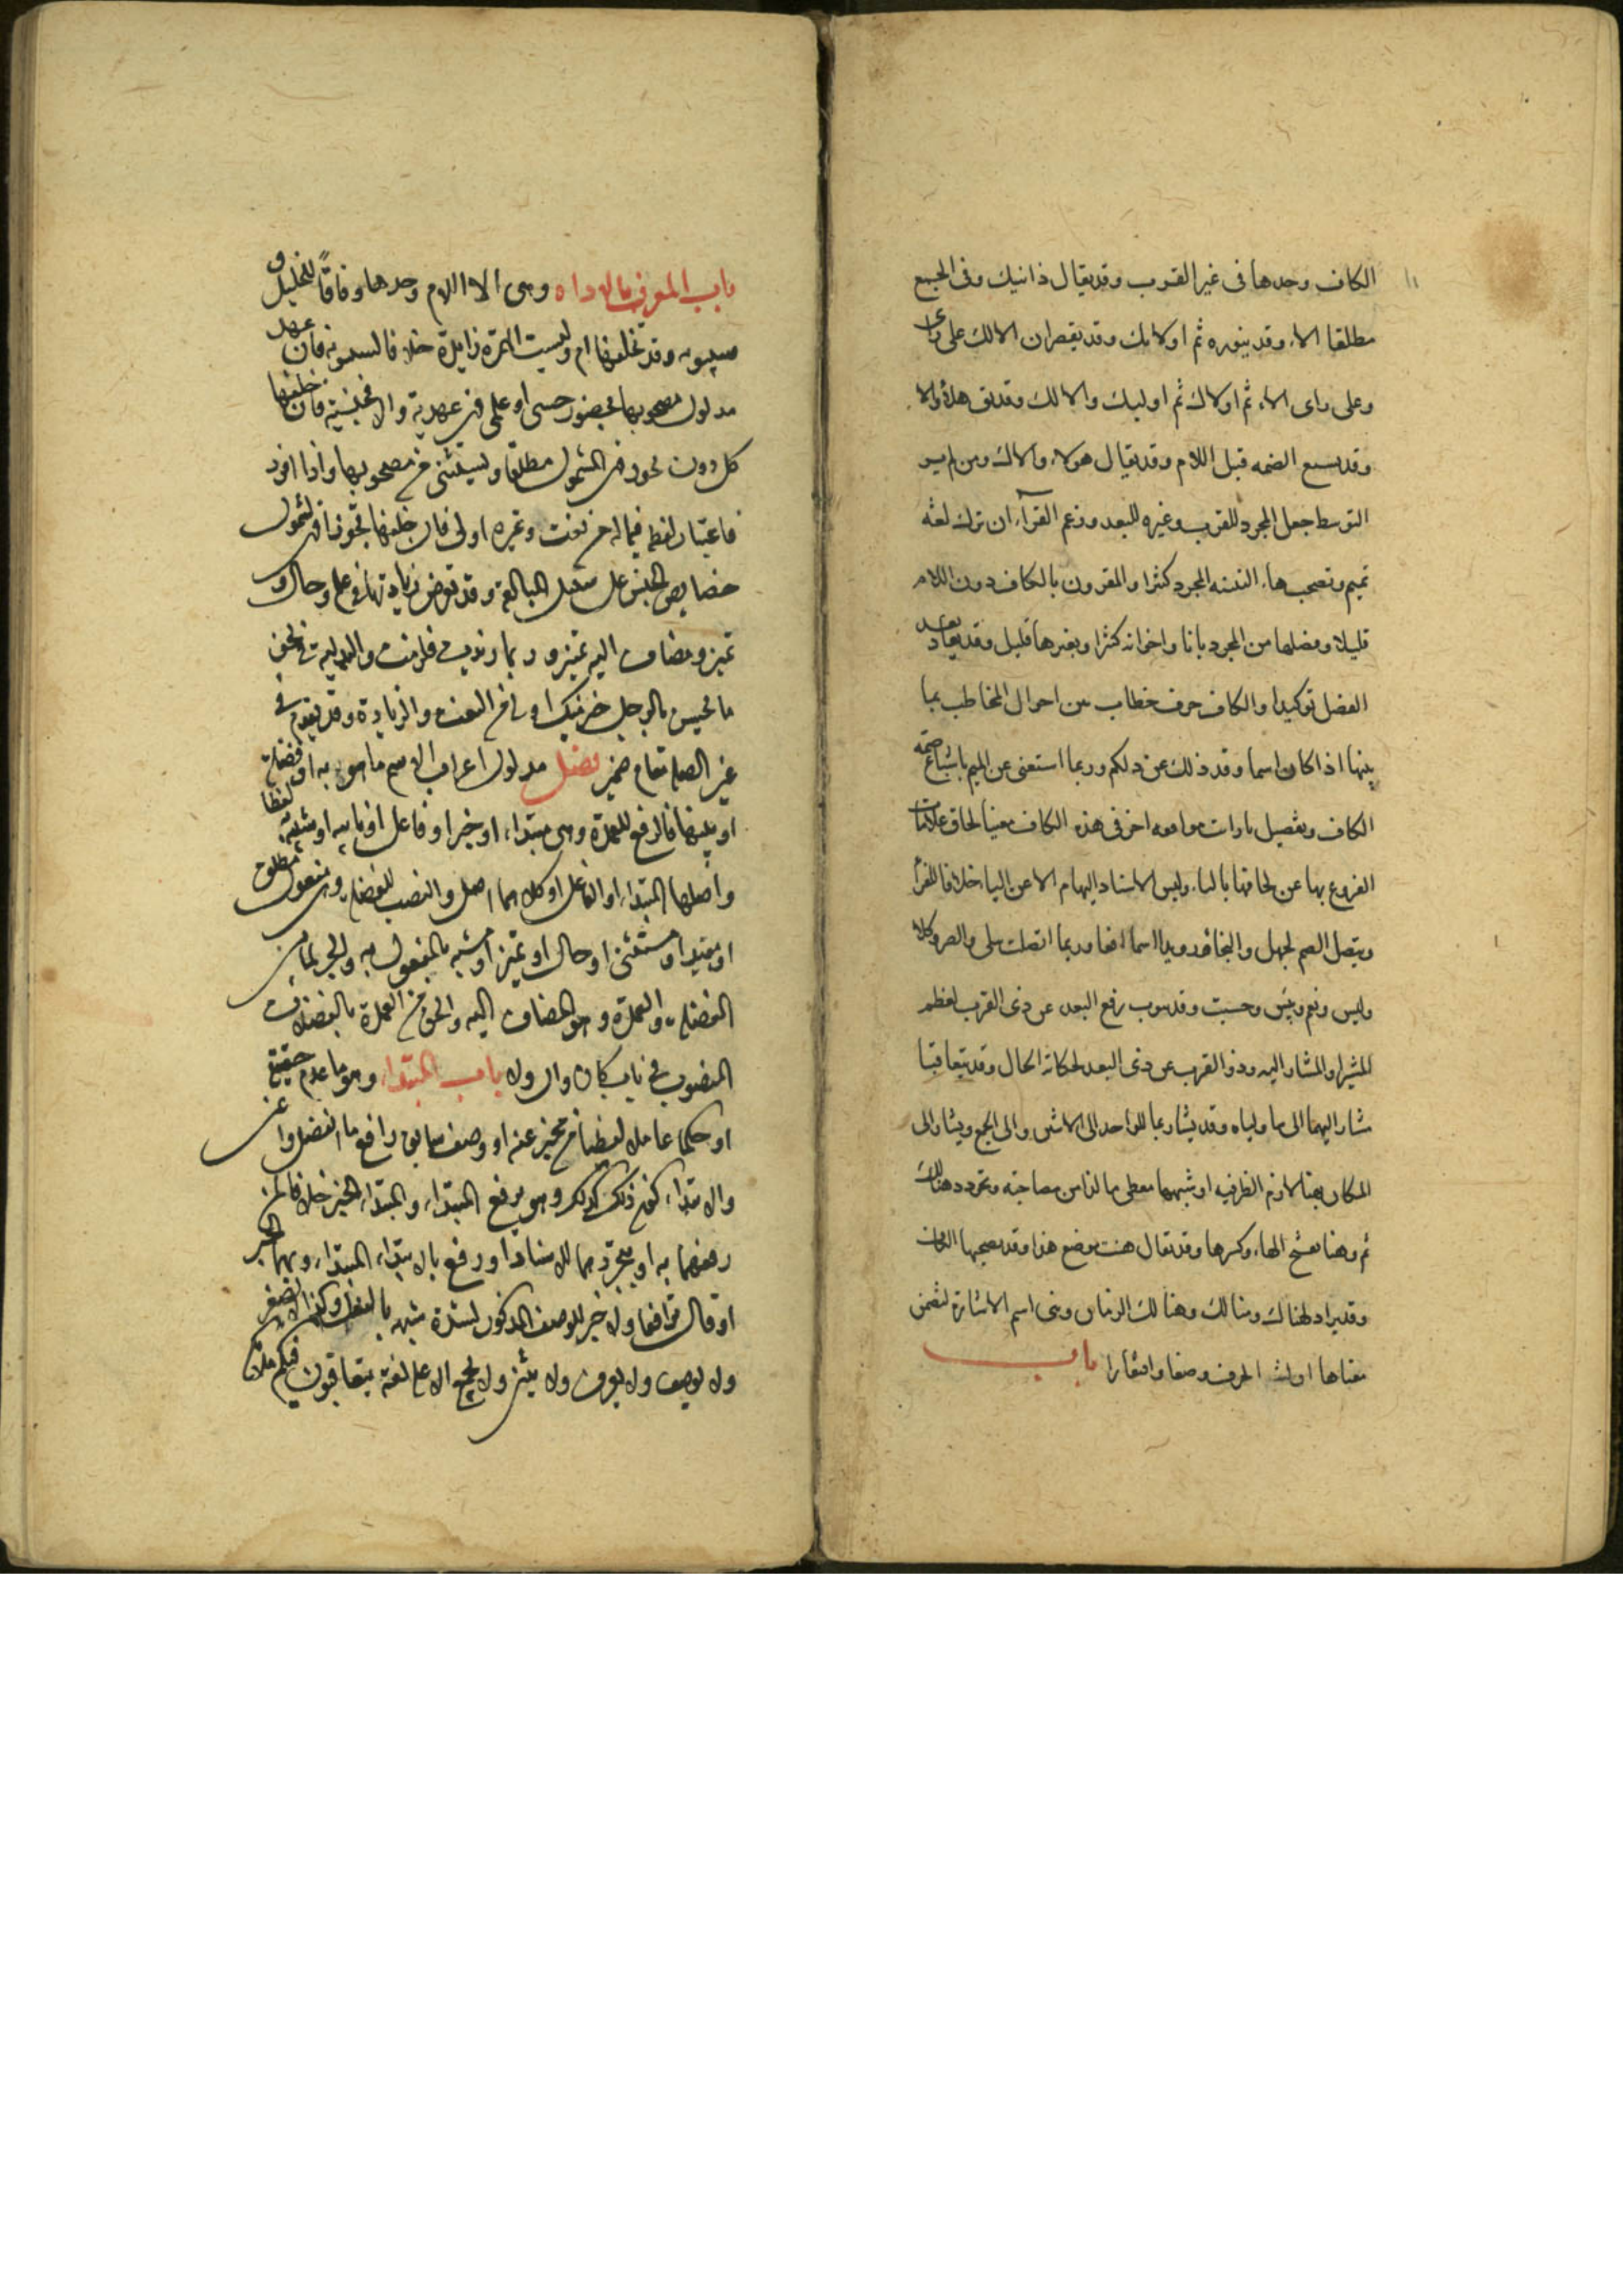 الكاف وحدها فى غير القرب وقد يقال ذانيك وفى الجمع
مطلقا الاء وقد ينون ثم اولائك وقد يقصران الالك على راى
وعلى راى الاء ثم اولاك ثم اوليك والالك وقديق هلاء والا
وقد يشبع الضمه قبل اللام وقد يقال هولاء والاك ومن لم ير
التوسط جعل المجرد للقرب وغيره للبعد وزعم الفراء ان ترك لغه
تميم وتصحب هاء التنبيه المجرد كثيرا والمقرون بالكاف دون اللام
قليلا وفصلها من المجرد بانا واخواته كثيرا وبغيرها قليل وقد يعاد بعد
الفصل توكيدا والكاف حرف خطاب من احوال المخاطب بما
يبينها اذا كان اسما وقد ذلك عن ذلكم وربما استغنى عن الميم باشباع ضمة
الكاف وبفصيل بارات موافقه اخرى فى هذه الكاف مغنيا لحاق علامات
الفروع بها عن لحاقها بالتاء وليس الاسناد اليها م الا عن التاء خلافا للفراء
ويتصل ايضا بحيهل والنجا ورويد اسما افعال وربما اتصلت ببلى وابصر وكلا
وليس ونعم وبئس وحسبت وقد ينوب رفع البعد عن ذى القرب لعظم
المشير او المشار اليه وذو القرب عن ذى البعد لحكاية الحال وقد يتعاقبا
مشار اليهما الى ما ولياه وقد يشار بما للواحد الى الاثنين والى الجمع ويشار الى
المكان بهنا لازم الظرفيه او شبهها معطى مالذا من مصاحبة وتجرد وهنالك
ثم وهنا بفتح الهاء وكسرها وقد تقال هنت موضع هنا وقد يصحبها الكاف
وقد يراد بهناك وهنالك وهنا الزمان وبنى اسم الاشارة لتضمن
معناها او لشبه الحرف وضعا وافتقارا باب
باب المعرف بالاداه وهى ال لا اللام وحدها وفاقا للخليل و
سيبويه وقد تخلفها ام وليست الهمزة زايدة خلافا لسيبويه فان عهد
مدلول مصحوبها بحضور حسى او علمى فهى عهدية والا فجنسية فان خلفها
كل دون تجوز فهى للشمول مطلقا ويستثنى من مصحوبها واذا افرد
فاعتبار لفظه فيما له من نعت وغيره اولى فان خلفها تجوزا فهى لشمول
خصايص الجنس على سبيل المبالغة وقد تعرض زيادتها فى علم وحال و
تميز ومضاف اليه تميز وربما زيدت فلزمت والبدلية فى نحو
ما يحسن بالرجل خير منك اولى من النعت والزيادة وقد تقوم فى
غير الصلة مقام ضمير فصل مدلول اعراب الاسم ما هو به عمدة او فضلة
او بينهما فالرفع للعمدة وهى مبتداء او خبر او فاعل او نايبه او شبيه به لفظا
واصلها المبتداء او الفاعل او كلاهما اصل والنصب للفضلة وهى مفعول مطلق
او مقيد او مستثنى او حال او تميز او مشبه بالمفعول به والجر لما بين
الفضلة والعمدة وهو المضاف اليه والحق من العمدة بالفضلات
المنصوب فى باب كان وان ولا باب المبتداء وهو ما عدم حقيقة
او حكما عاملا لفظيا من مخبر عنه او وصف سابق رافع ما انفصل واغنى
والابتداء كون ذلك كذلك وهو يرفع المبتداء والمبتداء الخبر خلافا لمن
رفعهما به او بتجردهما للاسناد او رفع بالابتداء المبتداء وبهما الخبر
او قال ترافعا ولا خبر للوصف المذكور لشدة شبهه بالفعل وكذا لا يصغر
ولا يوصف ولا يعرف ولا يثنى ولا يجمع الا على لغة يتعاقبون فيكم ملائكة